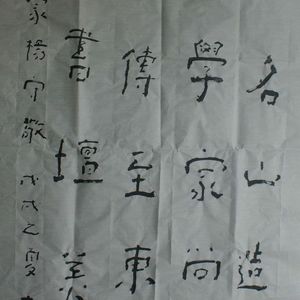 名山造
學家尚
傳至東
書壇
家楊守敬戊戌之夏